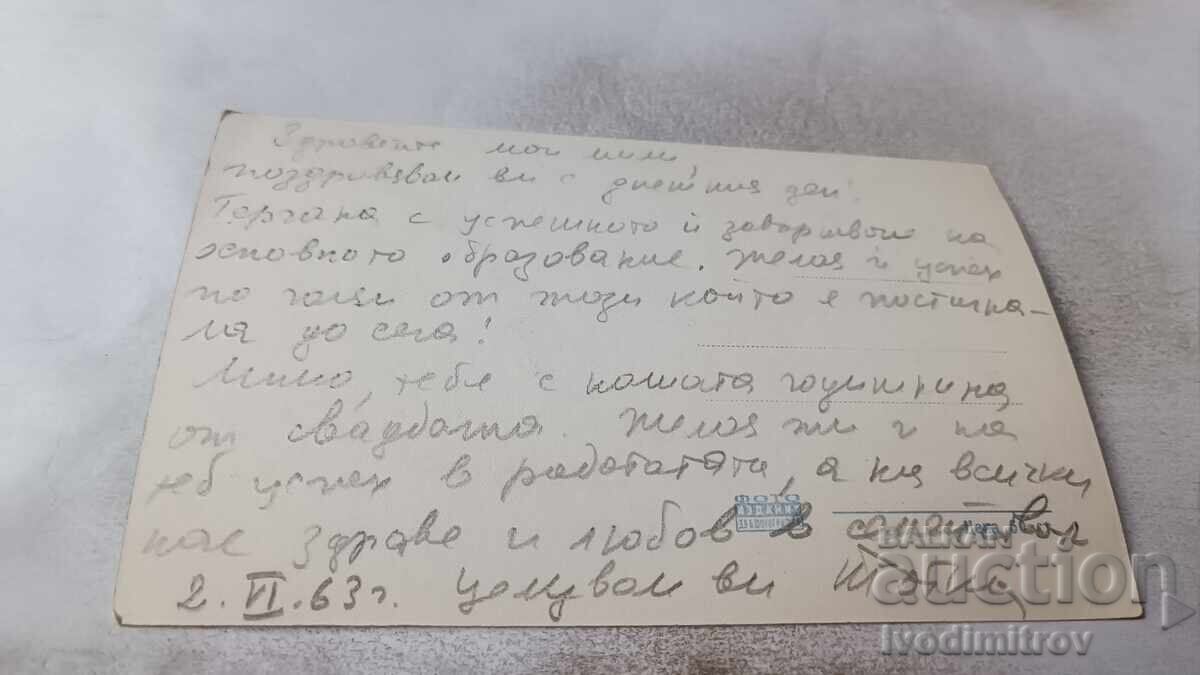 Здравейте мои мили,
поздравявам ви с днешния ден!
Гергана с успешното й завършване на
основното образование. Желая й успех
по голям от този който е постигна-
ла до сега!
Мимо, тебе с нашата годишнина
от свадбата. Желая ти и на
теб успех в работатата, а на всички
нас здраве и любов в
2. VI. 63 г. Целувам ви
ФОТО
ИЗДАНИЕ
Цена
БАЛКАН
auction
Ivodimitrov